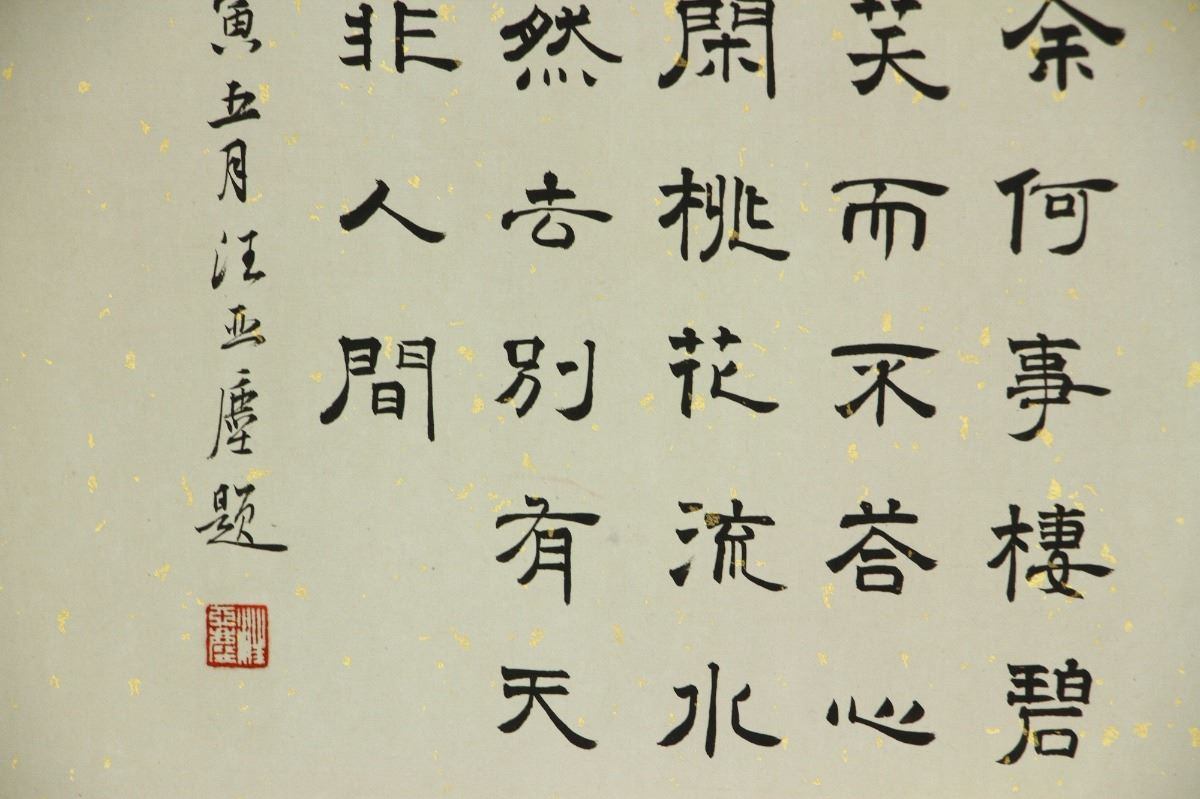 余何事棲碧
笑而不荅心
閑桃花流水
然去別有天
非人間
寅五月汪亞塵題
汪亞塵